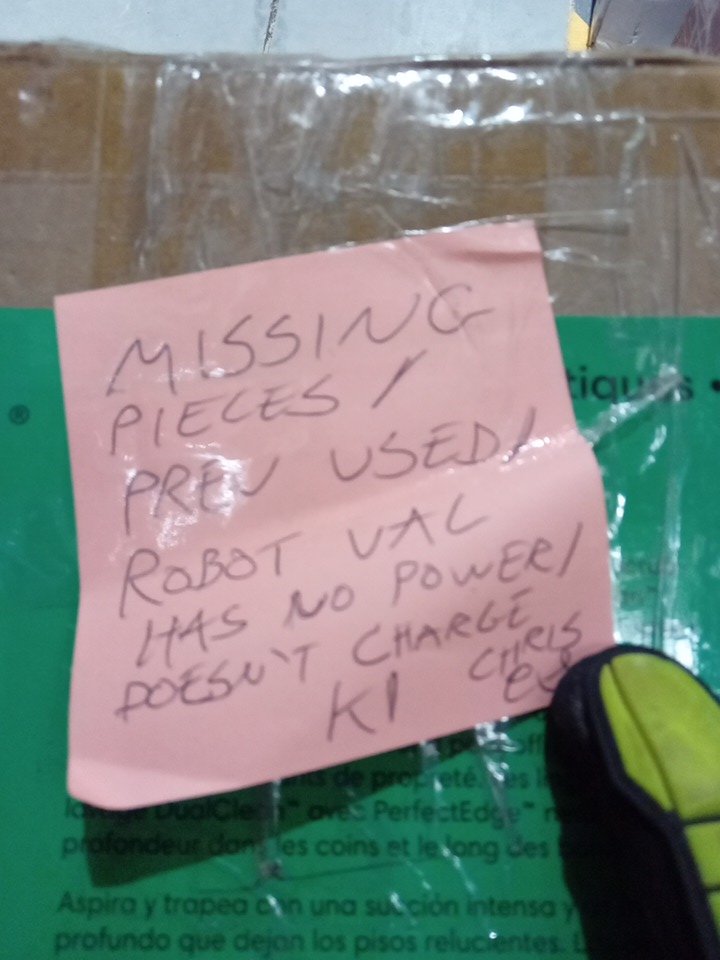 MISSING
PIECES /
PREV USED /
ROBOT VAC
HAS NO POWER /
DOESN'T CHARGE
CHRIS
KI
®
tiques •
nts de propreté.
DualClean™ avec PerfectEdge™
profondeur dans les coins et le long des
Aspira y trapea con una succión intensa y
profundo que dejan los pisos relucientes.